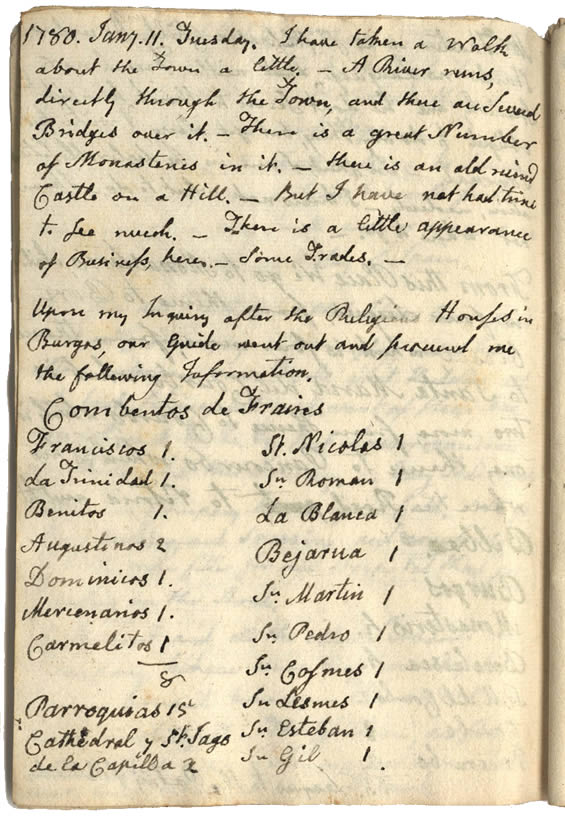 1780. Jany. 11. Tuesday. I have taken a Walk
about the Town a little. — A River runs,
directly through the Town, and there are Several
Bridges over it. — There is a great Number
of Monasteries in it. — there is an old ruind
Castle on a Hill. — But I have not had time
to see much. — There is a little appearance
of Business, here. — Some Trades. —
Upon my Inquiry after the Religious Houses in
Burgos, our Guide went out and procured me
the following Information.
Combentos de Fraires
Franciscos 1.
La Trinidad 1.
Benitos 1.
Augustinos 2
Dominicos 1.
Mercenarios 1.
Carmelitos 1
8
Parroquias 15
Cathedral y St. Iago
de la Capilla 2
St. Nicolas 1
Sn. Roman 1
La Blanca 1
Bejarua 1
Sn. Martin 1
Sn. Pedro 1
Sn. Cosmes 1
Sn Lesmes 1
Sn. Esteban 1
Sn Gil 1.